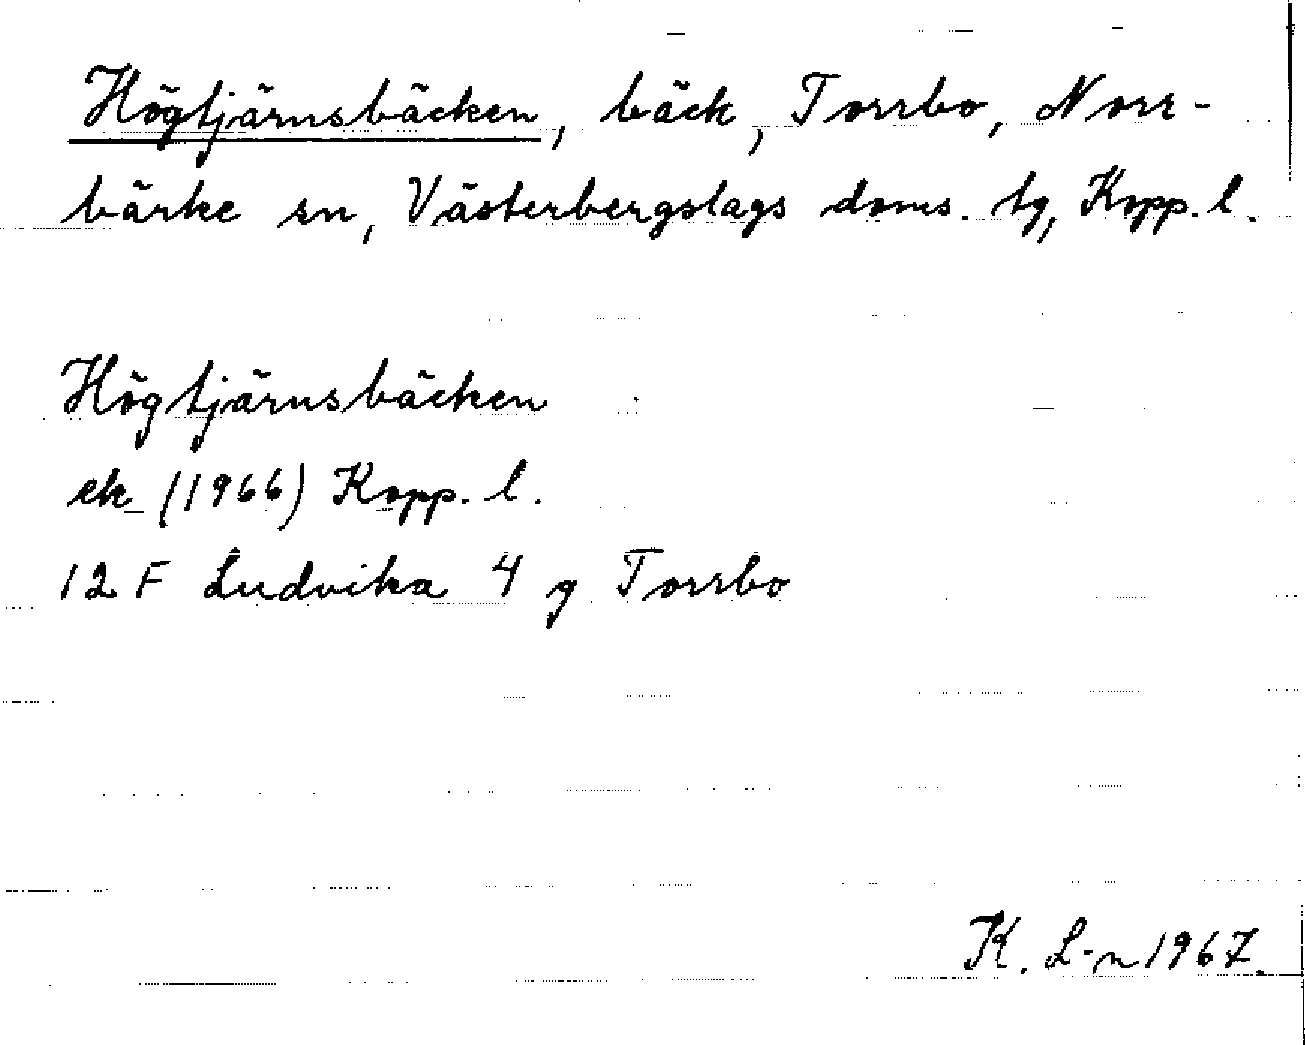 Högtjärnsbäcken, bäck, Torrbo, Norr-
bärke sn, Västerbergslags doms. tg, Kopp. l.
Högtjärnsbäcken
ek (1966) Kopp. l.
12 F Ludvika 4 g Torrbo
K. L-n 1967.